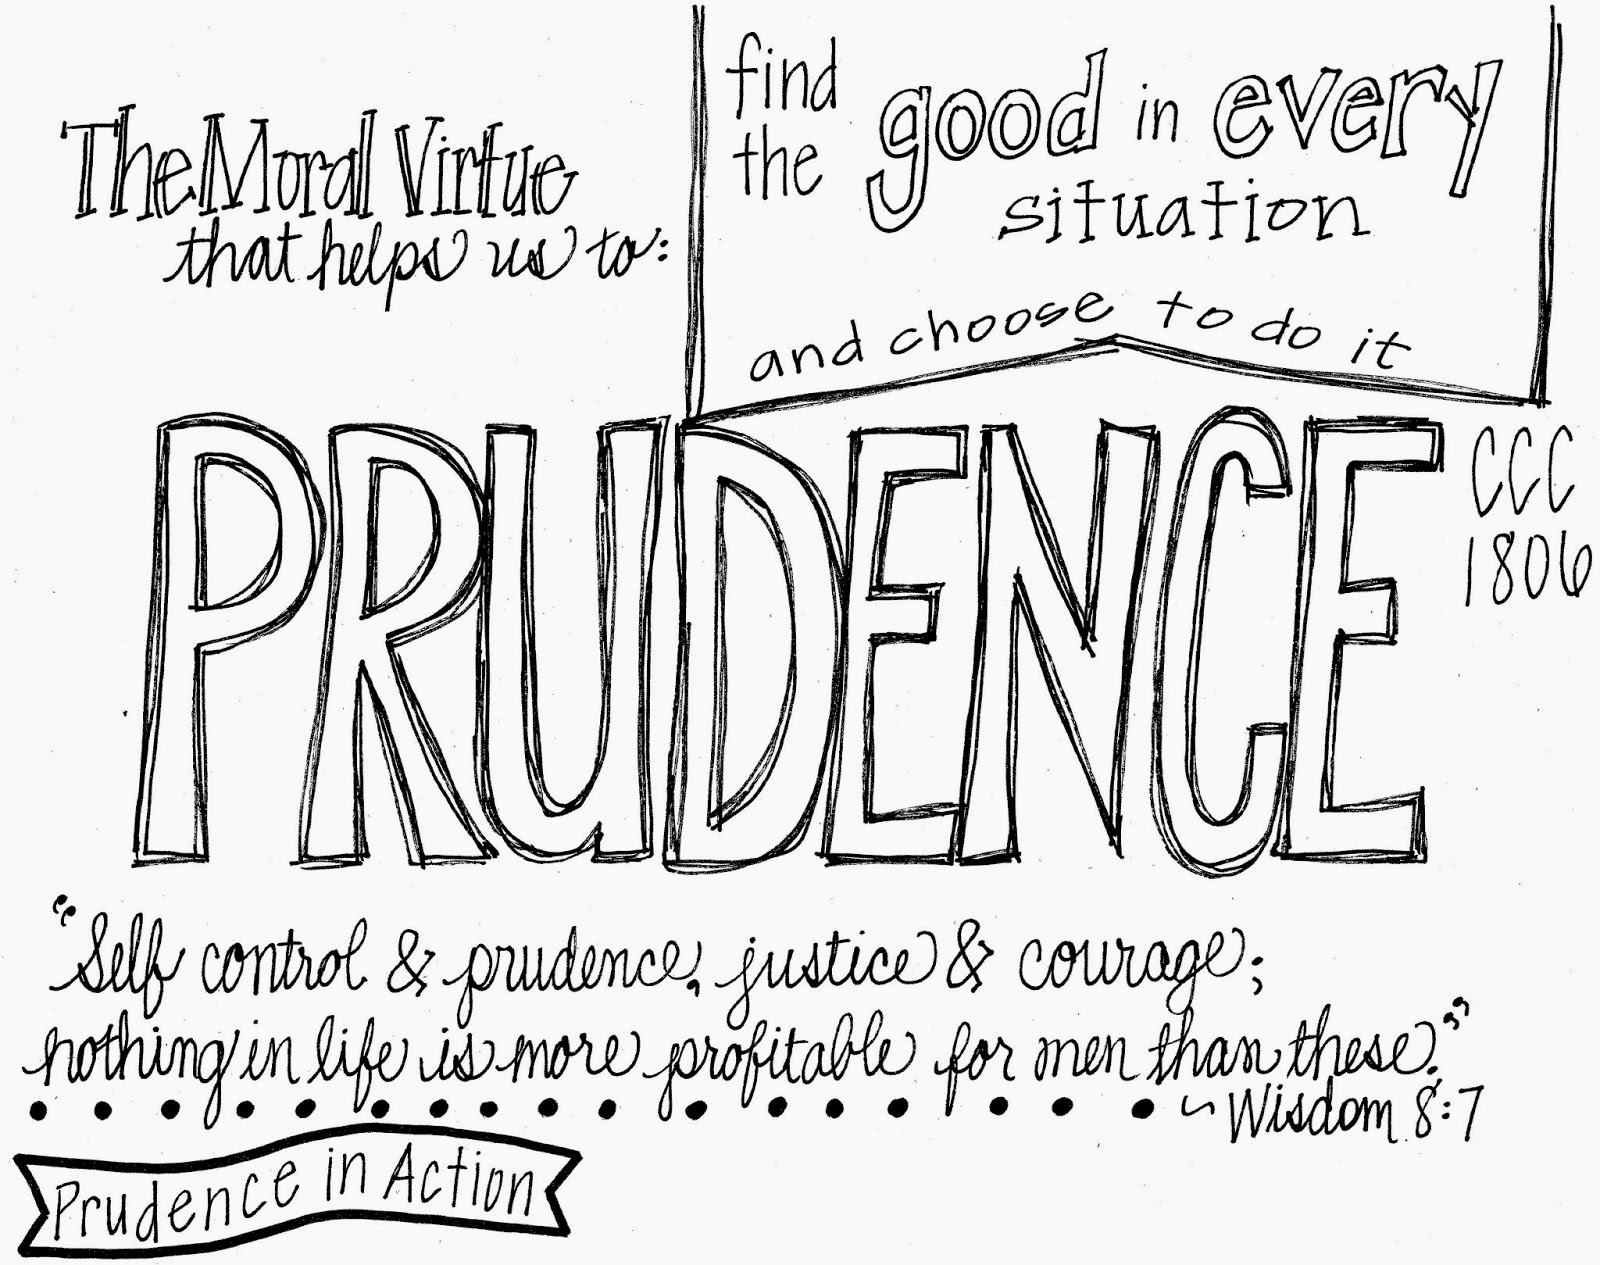 The Moral Virtue
that helps us to:
find
the
good in every
situation
and choose to do it
PRUDENCE
CCC
1806
"Self control & prudence, justice & courage;
nothing in life is more profitable for men than these."
~ Wisdom 8:7
Prudence in Action